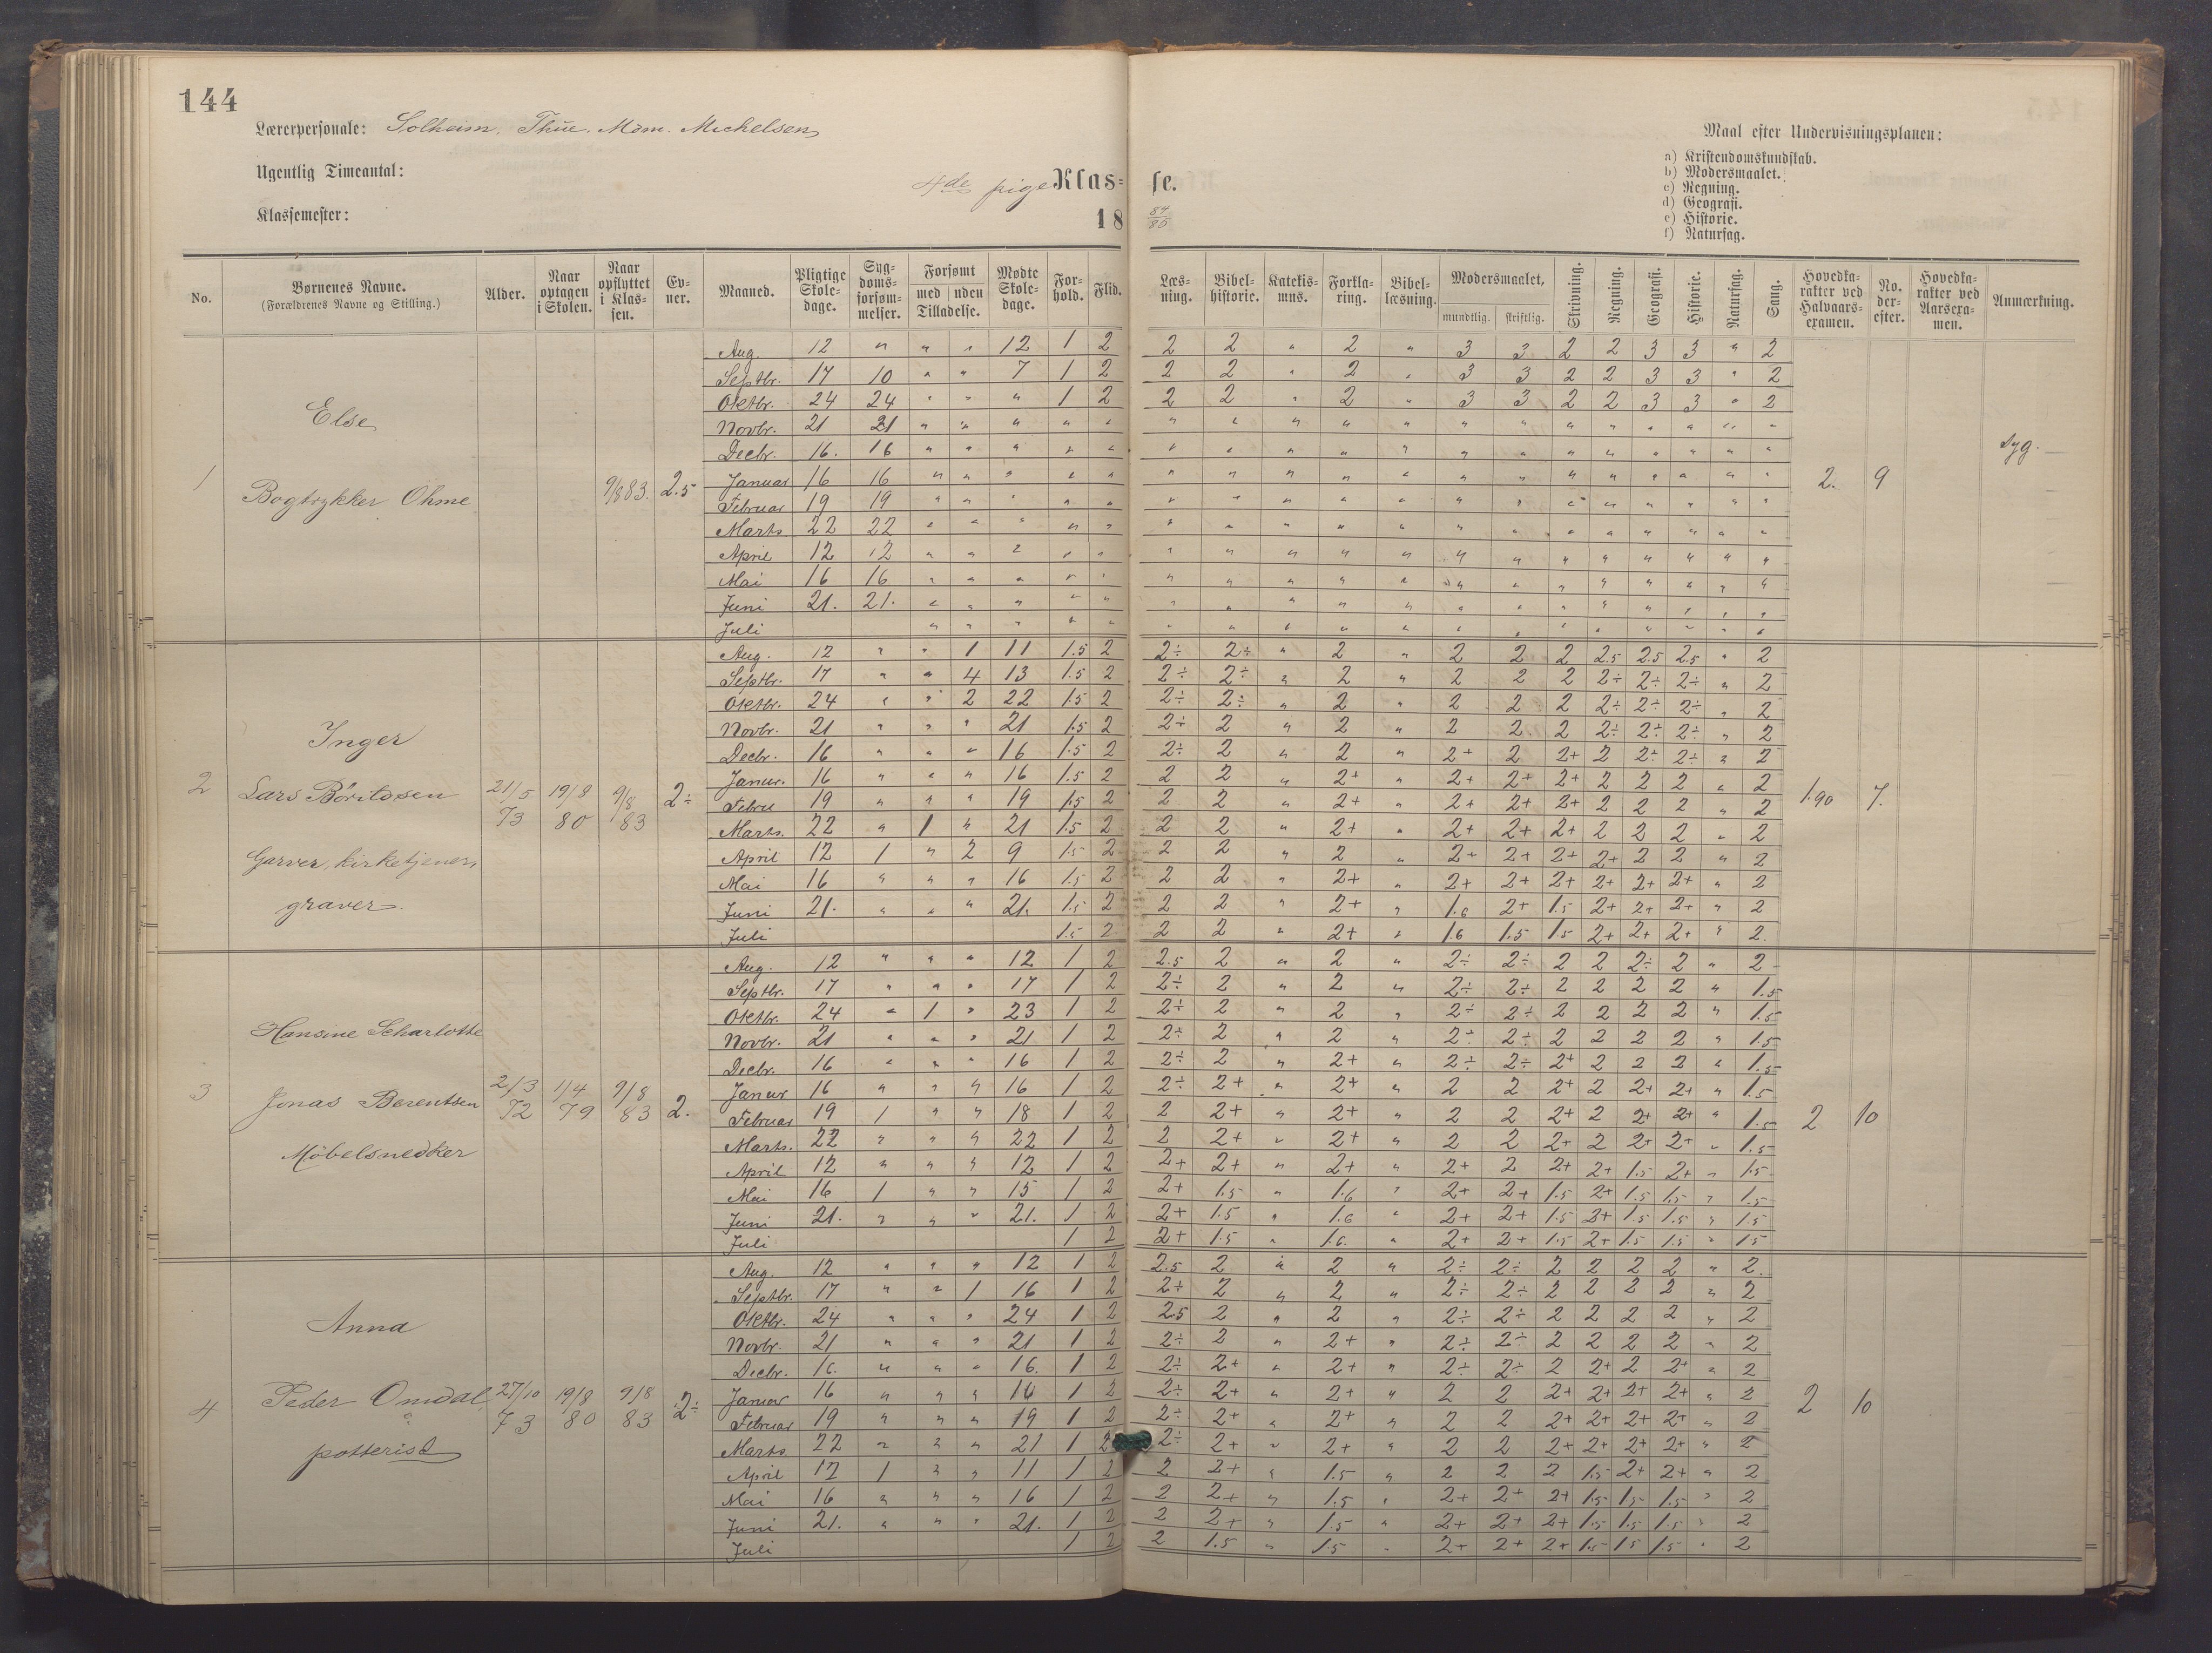 144
Lærerpersonale: Solheim, Thue, Mdm. Michelsen
Ugentlig Timeantal:
4de pige Klas= se.
Klassemester:
18 84/85
Maal efter Undervisningsplanen:
a) Kristendomskundskab.
b) Modersmaalet.
c) Regning.
d) Geografi.
e) Historie.
f) Naturfag.
No. Børnenes Navne. (Forældrenes Navne og Stilling.) Alder. Naar optagen i Skolen. Naar opflyttet i Klassen. Evner. Maaned. Pligtige Skoledage. Sygdomsforsømmelser. Forsømt med uden Tilladelse. Mødte Skoledage. Forhold. Flid. Læsning. Bibelhistorie. Katekismus. Forklaring. Bibellæsning. Modersmaalet, mundtlig. skriftlig. Skrivning. Regning. Geografi. Historie. Naturfag. Sang. Hovedkarakter ved Halvaarsexamen. No. derefter. Hovedkarakter ved Aarsexamen. Anmærkning.
1 Else Bogtrykker Öhme 9/8 83. 2.5 2. 9 syg.
Aug. 12 " " " 12 1 2 2 2 " 2 " 3 3 2 2 3 3 " 2
Septbr. 17 10 " " 7 1 2 2 2 " 2 " 3 3 2 2 3 3 " 2
Oktbr. 24 24 " " " 1 2 2 2 " 2 " 3 3 2 2 3 3 " 2
Novbr. 21 21 " " " " " " " " " " " " " " " " " "
Decbr. 16. 16 " " " " " " " " " " " " " " " " " "
Januar 16 16 " " " " " " " " " " " " " " " " " "
Februar 19 19 " " " " " " " " " " " " " " " " " "
Marts 22 22 " " " " " " " " " " " " " " " " " "
April 12 12 " " " " " " " " " " " " " " " " "
Mai 16 16 " " " " " " " " " " " " " " " " " "
Juni 21. 21. " " " " " " " " " " " " " " " " " "
Juli " " " " " " " " " " " " " " " " " "
2 Inger Lars Börildsen Garver, kirketjener, graver. 21/5 73 19/8 80 9/8 83 2÷ 1.90 7.
Aug. 12 " " 1 11 1.5 2 2÷ 2÷ " 2 " 2 2 2 2.5 2.5 2.5 " 2
Septbr. 17 " " 4 13 1.5 2 2÷ 2÷ " 2 " 2 2 2 2÷ 2÷ 2÷ " 2
Oktbr. 24 " " 2 22 1.5 2 2÷ 2÷ " 2 " 2 2 2 2÷ 2÷ 2÷ " 2
Novbr. 21 " " " 21 1.5 2 2÷ 2 " 2 " 2 2. 2 2÷ 2÷ 2÷ " 2
Decbr. 16 " " " 16 1.5 2 2÷ 2 " 2 " 2+ 2 2+ 2 2÷ 2÷ " 2
Janur. 16 " " " 16 1.5 2 2 2 " 2+ " 2+ 2+ 2+ 2 2 2 " 2
Febru 19 " " " 19 1.5 2 2 2 " 2+ " 2+ 2+ 2+ 2 2 2 " 2
Marts. 22 " 1 " 21 1.5 2 2 2 " 2+ " 2+ 2+ 2+ 2 2 2 " 2
April 12 1 " 2 9 1.5 2 2 2 " 2 " 2+ 2+ 2+ 2+ 2 2 " 2
Mai 16 " " " 16 1.5 2 2 2 " 2+ " 2+ 2+ 2+ 2+ 2+ 2+ " 2
Juni 21. " " " 21. 1.5 2 2 2 " 2+ " 1.6 2+ 1.5 2+ 2+ 2+ " 2
Juli 1.5 2 2 2 " 2+ " 1.6 1.5 1.5 2+ 2+ 2+ " 2.
3 Hansine Scharlotte Jonas Berentsen Möbelsnedker 2/3 72 1/4 79 9/8 83 2. 2 10
Aug. 12 " " " 12 1 2 2.5 2 " 2 " 2÷ 2÷ 2 2 2÷ 2 " 2
Septbr. 17 " " " 17 1 2 2÷ 2 " 2 " 2÷ 2÷ 2 2 2 2 " 1.5
Oktbr. 24 " 1 " 23 1 2 2÷ 2 " 2 " 2÷ 2÷ 2 2 2 2 " 1.5
Novbr. 21 " " " 21 1 2 2÷ 2 " 2 " 2÷ 2÷ 2 2 2 2 " 1.5
Decbr. 16 " " " 16 1 2 2÷ 2 " 2+ " 2÷ 2÷ 2+ 2 2 2 " 1.5
Janur 16 " " " 16 1 2 2÷ 2+ " 2+ " 2 2 2+ 2 2+ 2+ " 1.5
Februar 19 1 " " 18 1 2 2 2+ " 2+ " 2 2 2+ 2 2+ 2+ " 1.5
Marts. 22 " " " 22 1 2 2 2+ " 2+ " 2 2 2+ 2 2+ 2+ " 1.5
April 12 " " " 12 1 2 2+ 2+ " 2+ " 2+ 2 2+ 2+ 1.5 2+ " 1.5
Mai 16 1 " " 15 1 2 2+ 1.5 " 1.6 " 2+ 2+ 1.5 2+ 1.5 1.5 " 1.5
Juni 21. " " " 21. 1 2 2+ 1.5 " 1.6 " 2+ 2+ 1.5 2+ 1.5 1.5 " 1.5
Juli 1 2 2+ 1.5 " 1.6. " 2+ 2+ 1.5 2+ 1.5 1.5 " 1.5
4 Anna Peder Omdal, potterist 27/10 73 19/8 80 9/8 83 2÷ 2 10
Aug. 12 " " " 12 1 2 2.5 2 " 2 " 2÷ 2÷ 2 2 2 2 " 2.
Septbr. 17 " " 1 16 1 2 2÷ 2 " 2 " 2÷ 2÷ 2 2 2 2 " 2
Oktbr. 24 " " " 24 1 2 2.5 2 " 2 " 2÷ 2÷ 2 2 2 2 " 2
Novbr. 21 " " " 21 1 2 2÷ 2 " 2+ " 2÷ 2÷ 2 2 2 2 " 2
Decbr. 16. " " " 16. 1 2 2÷ 2+ " 2+ " 2÷ 2÷ 2 2+ 2 2+ " 2
Janur 16 " " " 16 1 2 2÷ 2+ " 2+ " 2 2 2+ 2+ 2+ 2+ " 2
Februar 19 " " " 19 1 2 2÷ 2+ " 2+ " 2 2 2+ 2+ 2+ 2+ " 2
Marts. 22 " " " 21 1 2 2÷ 2+ " 2+ " 2 2 2+ 2+ 2+ 2+ " 2
April 12 1 " " 11 1 2 2 2+ " 1.5 " 2 2 2 1.5 2+ 2+ " 2
Mai 16 " " " 16 1 2 2 2+ " 1.5 " 2+ 2+ 2+ 1.5 1.5 1.5 " 2
Juni 21. " " " 21. 1 2 2 2+ " 1.5 " 2+ 2+ 2+ 1.5 1.5 1.5 " 2
Juli 1 2 2 1.5 " 1.5 " 2+ 2+ 2+ 1.5 1.5 1.5 " 2